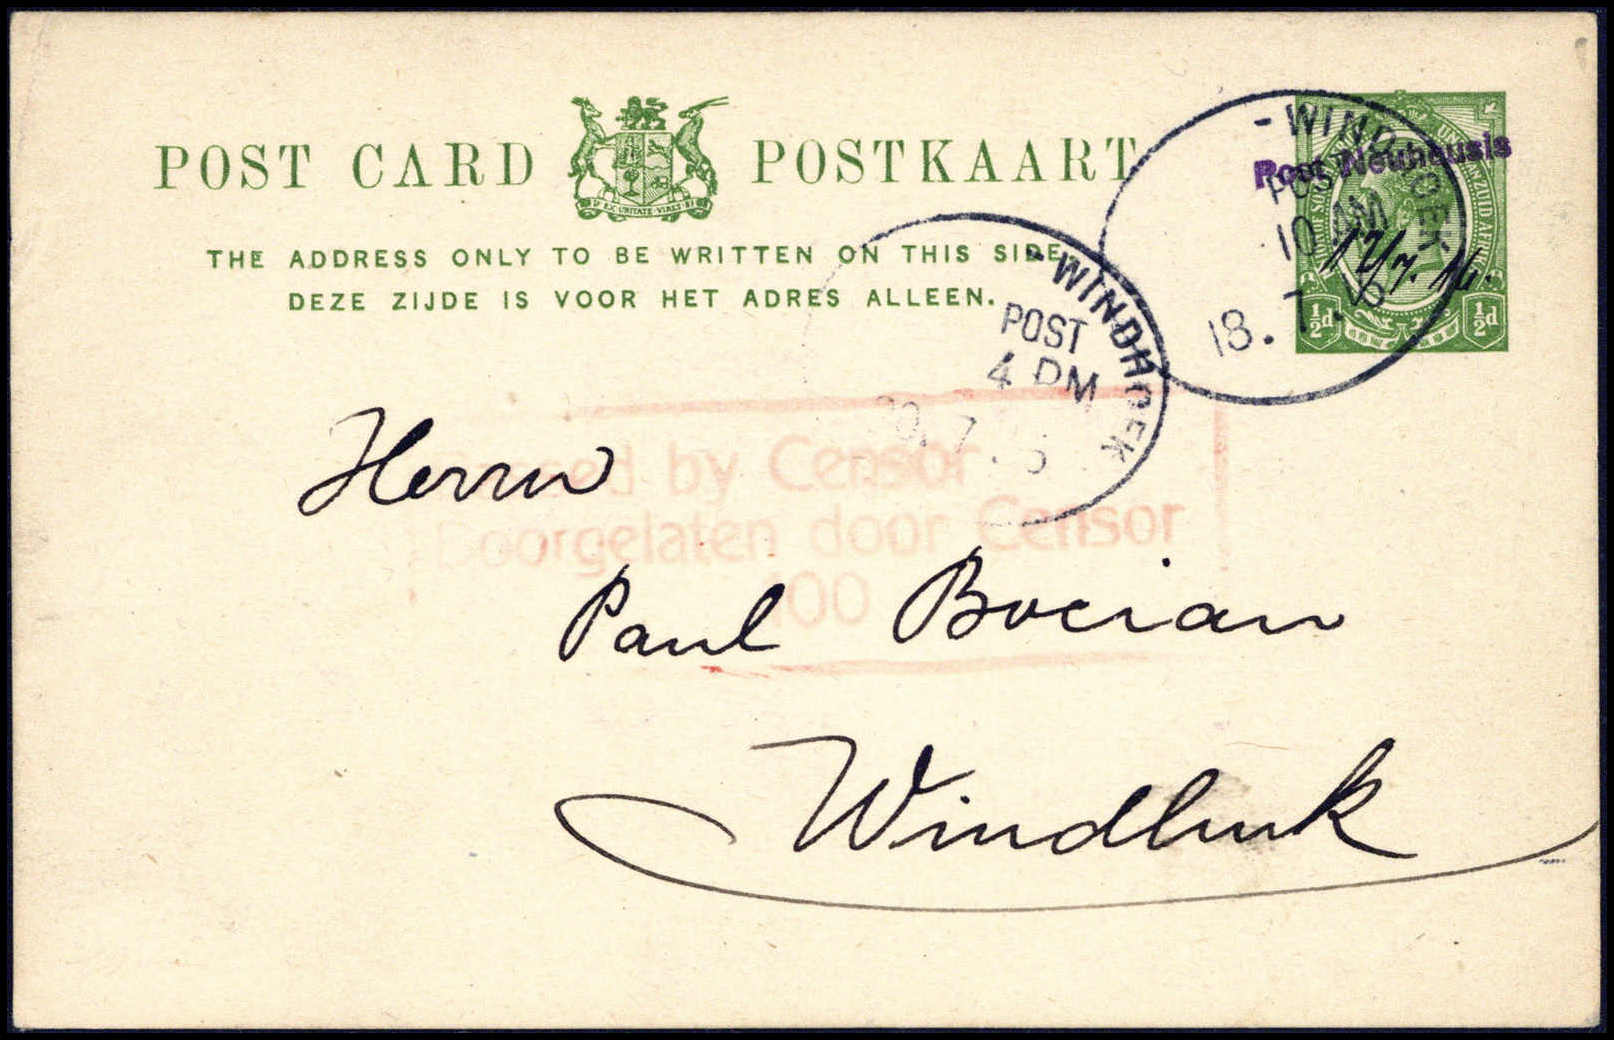 POST CARD POSTKAART
THE ADDRESS ONLY TO BE WRITTEN ON THIS SIDE.
DEZE ZIJDE IS VOOR HET ADRES ALLEEN.
EX UNITATE VIRES
-WINDHOEK
POST
10 AM
18. 7. 6
Post Neuheusis
17/7. 16.
½d ½d
-WINDHOEK
POST
4 PM
20. 7 . 6
Passed by Censor
Doorgelaten door Censor
100
Herrn
Paul Bocian
Windhuk